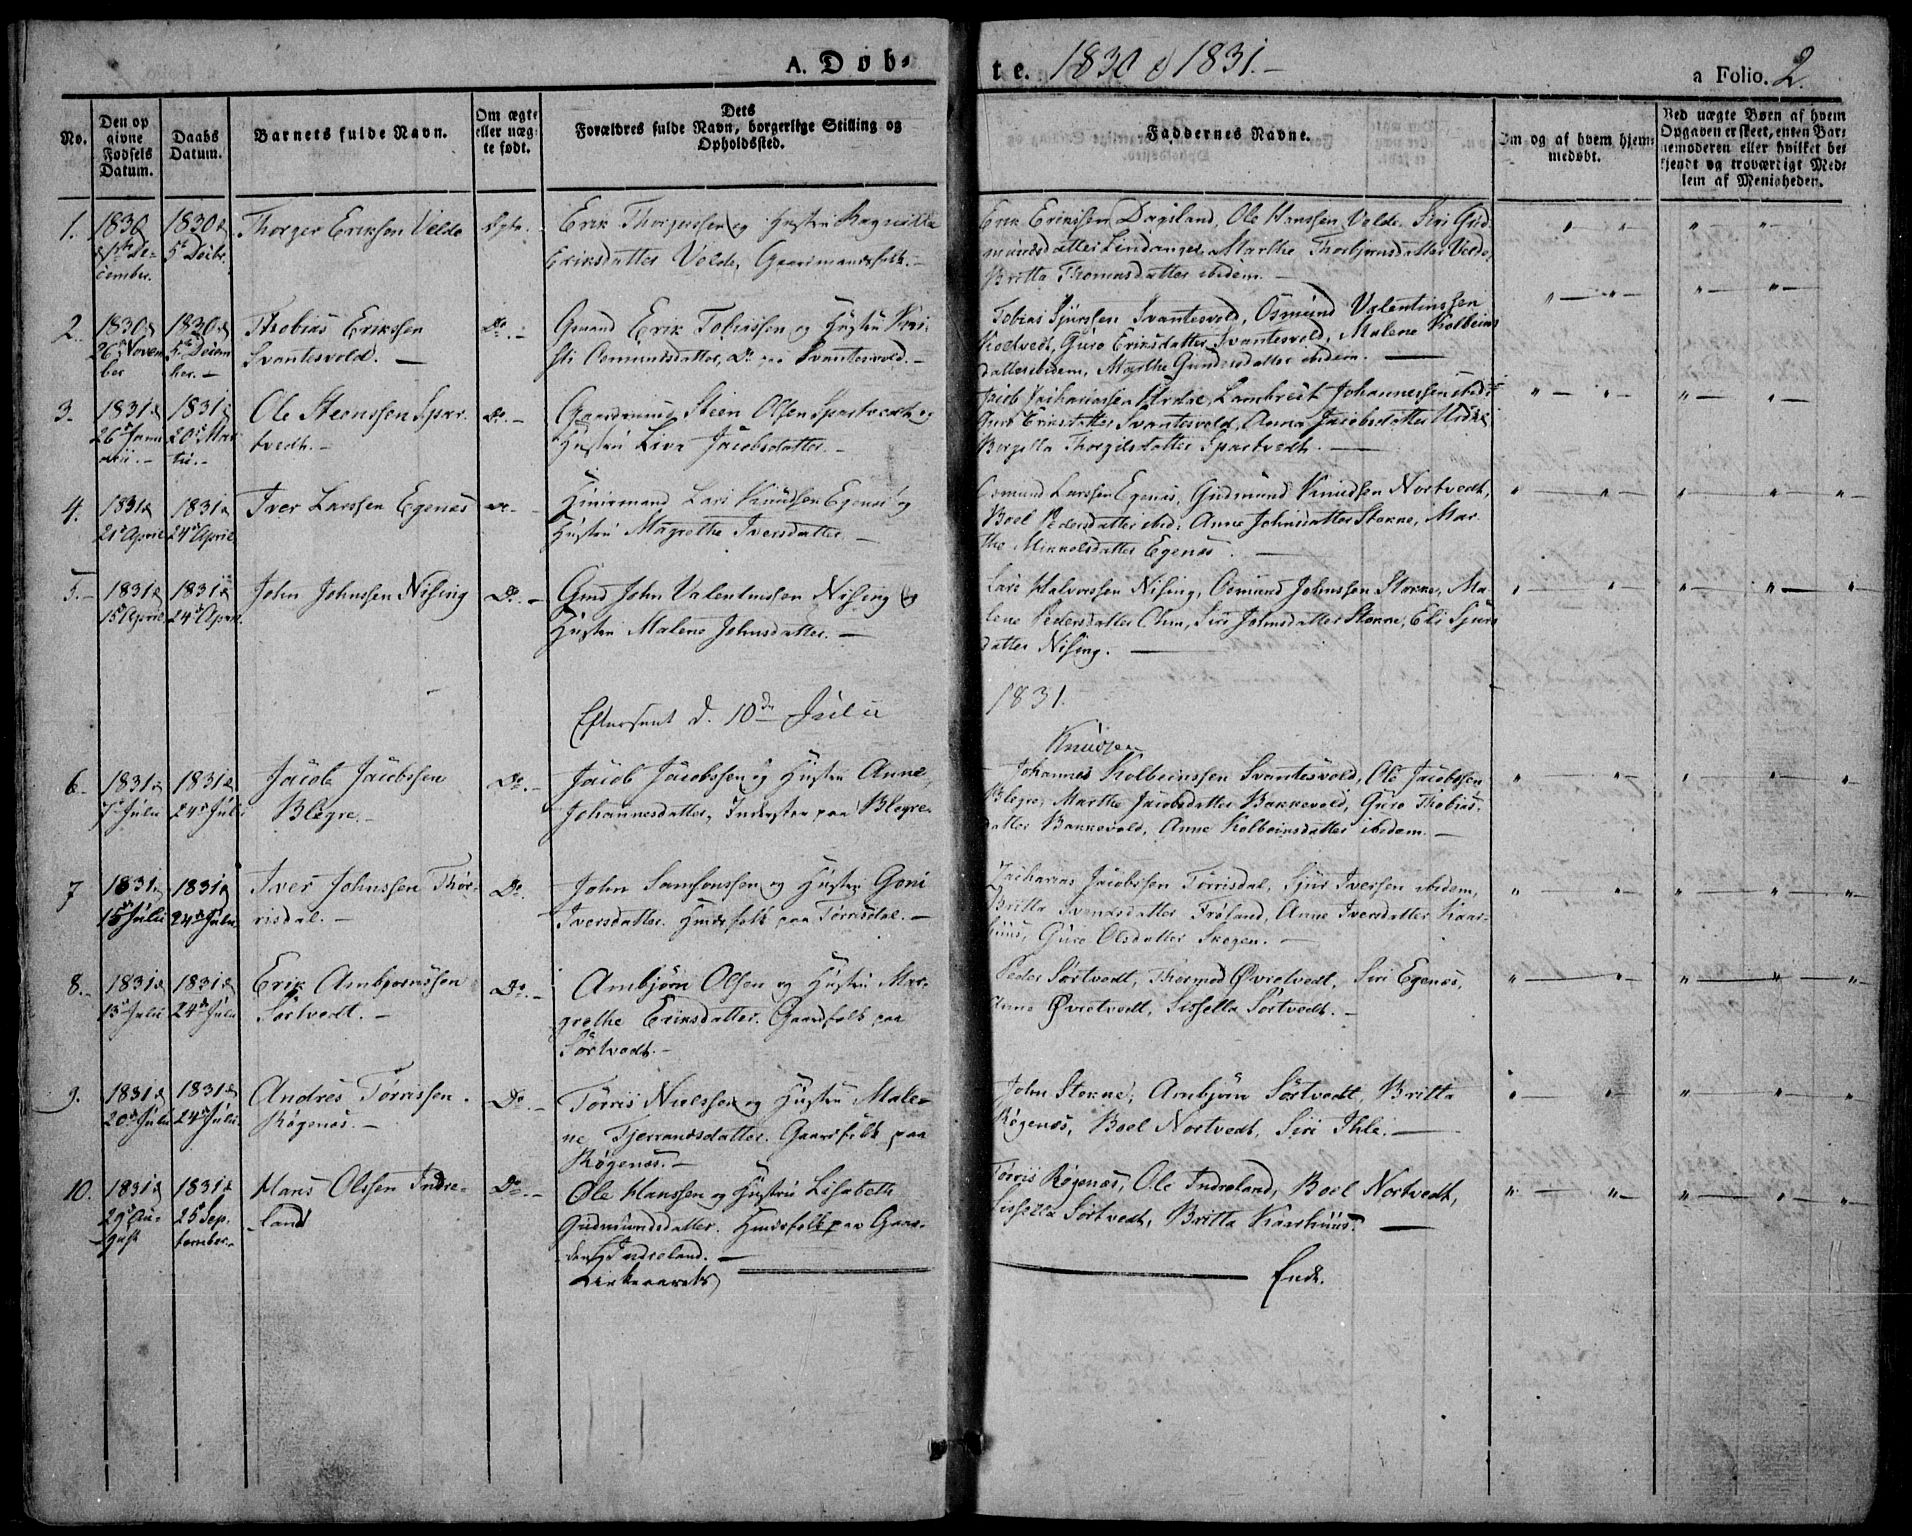 A. Døb-
te. 1830 & 1831.-
a Folio. 2.
No.
Den op
givne
Fødsels
Datum.
Daabs
Datum.
Barnets fulde Navn.
Om ægte
eller uæg-
te født.
Dets
Forældres fulde Navn, borgerlige Stilling og
Opholdssted.
Faddernes Navne.
Om og af hvem hjem-
medøbt.
Ved uægte Børn af hvem
Opgaven er skeet, enten Bar-
nemoderen eller hvilket be-
kjendt og troværdigt Med-
lem af Menigheden.
1.
1830
De-
cember.
1830 d
5te Decbr.
Thorger Eriksen Velde
Ægte.
Erik Thorgerssen og Hustru Ragnilla
Eriksdatter Velde, Gaardmandsfolk. -
Erik Erikssen Dagsland, Ole Hanssen Velde, Siri Gud-
mundsdatter Lindanger, Marthe Thorbjørnsdatter Velde,
Britta Thomasdatter ibidem. -
2.
1830 d
26de Novem
ber
1830 d
5te Decem
ber. -
Thobias Erikssen
Svantesvold. -
Do. -
Gmand Erik Tobiassen og Hustru Kri-
sti Asmundsdatter, Do paa Svantesvold. -
Tobias Sjurssen Svantesvold, Osmund Valentinssen
Kodvedt, Guro Eriksdatter Svantesvold, Malene Kolbeins
datter ibidem, Marthe Gundersdatter ibidem. -
3.
1831 d
26de Janu
arii. -
1831 d
20de Mar
tii. -
Ole Steenssen Spar-
tvedt. -
Do. -
Gaardmand Steen Olssen Spartvedt og
Hustru Liva Jacobsdatter. -
Jacob Zachariassen Urdal, Lambrect Johannessen ibid:
Guro Eriksdatter Svantesvold, Anna Jacobsdatter
Bergitta Thorgilsdatter Spartvedt. -
4.
1831 d
21de April
1831 d
24de April
Iver Larssen Egenæs
Do. -
Lars Knudssen Egenæs og
Hustru Magrethe Iversdatter. -
Osmund Larssen Egenæs, Gudmund Knudsen Nortvedt,
Boel Pedersdatter ibid: Anne Johnsdatter Stokke, Mar-
the Mikkelsdatter Egenæs. -
5. -
1831 d
15de April
1831 d
24de April.
John Johnssen Nising
Do. -
Gmd John Valentinssen Nising og
Hustru Malene Johnsdatter. -
Lars Halvorssen Nising, Osmund Johnssen Stokke, Ma-
lene Pedersdatter Ohm, Siri Johnsdatter Stokke, Eli Sjurs
datter Nising. -
Eftersent d. 10de Julii
1831.
6. -
1831 d
7de Julii
1831 d
24de Julii
Jacob Jacobssen
Blegre. -
Do. -
Jacob Jacobssen og Hustru Anne
Johannesdatter, Inderster paa Blegre.
Knudsen
Johannes Kolbeinssen Svantesvold, Ole Jacobssen
Blegre, Marthe Jacobsdatter Bakkevold, Guro Thobias-
datter Bakkevold, Anne Kolbeinsdatter ibidem. -
7
1831 d
15de Julii
1831 d
24de Julii
Iver Johnssen Tør-
risdal. -
Do.
John Samsonssen og Hustru Goni
Iversdatter. Huusfolk paa Tørrisdal. -
Zacharias Jacobssen Tørrisdal, Sjur Iversen ibidem,
Britta Svendsdatter Frøland, Anne Iversdatter Kaar-
huus, Guro Olsdatter Skogen. -
8. -
1831 d
13de Julii
1831 d
24de Julii
Erik Ambjørnssen
Sørtvedt. -
Do. -
Ambjørn Olsen og Hustru Mar-
grethe Eriksdatter. Gaardfolk paa
Sørtvedt. -
Peder Sørtvedt, Thormod Øvretvedt, Siri Egenæs,
Anne Øvretvedt, Sissella Sørtvedt. -
9.
1831 d
20de Julii
1831 d
24de Julii
Andres Tørrissen
Røgenæs. -
Do. -
Tørris Nielssen og Hustru Male-
ne Tjerrandsdatter. Gaardfolk paa
Røgenæs. -
John Stokke, Ambjørn Sørtvedt, Britta
Røgenæs, Boel Nortvedt, Siri Ihle. -
10.
1831 d
29de Au-
gust
1831 d
25de Sep-
tember. -
Hans Olssen Indre-
land
Do. -
Ole Hanssen og Hustru Lisabeth
Gudmundsdatter. Huusfolk paa Gaar-
den Indreland. -
Tørris Røgenæs, Ole Indreland, Boel Nortvedt,
Sissella Sørtvedt, Britta Kaarhuus. -
Kirkeaarets
Ende.